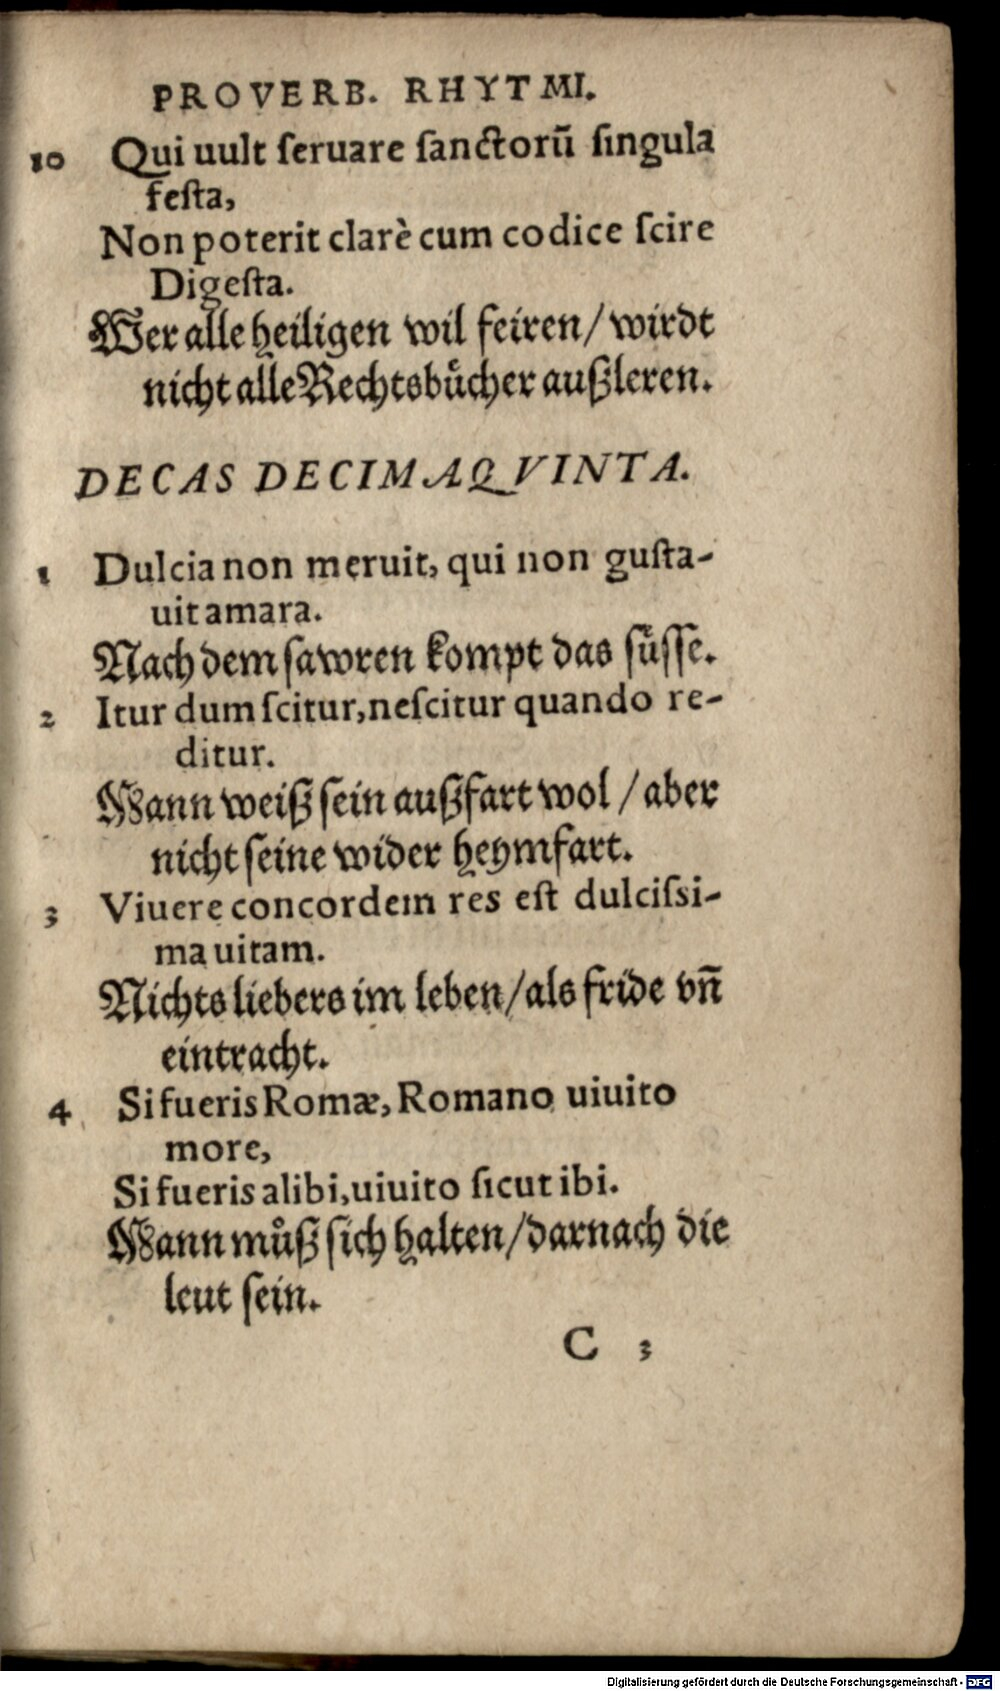 PROVERB. RHYTMI.
10 Qui uult ſeruare ſanctorũ ſingula
feſta,
Non poterit clarè cum codice ſcire
Digeſta.
Wer alle heiligen wil feiren/ wirdt
nicht alle Rechtsbuͤcher außleren.
DECAS DECIMAQVINTA.
1 Dulcia non meruit, qui non guſta-
uit amara.
Nach dem ſawren kompt das ſuͤſſe.
2 Itur dum ſcitur, neſcitur quando re-
ditur.
Mann weiß ſein außfart wol / aber
nicht ſeine wider heymfart.
3 Viuere concordem res eſt dulciſsi-
ma uitam.
Nichts liebers im leben/als fride vñ
eintracht.
4 Si fueris Romæ, Romano uiuito
more,
Si fueris alibi, uiuito ſicut ibi.
Mann muͦß ſich halten/darnach die
leut ſein.
C 3
Digitalisierung gefördert durch die Deutsche Forschungsgemeinschaft - DFG